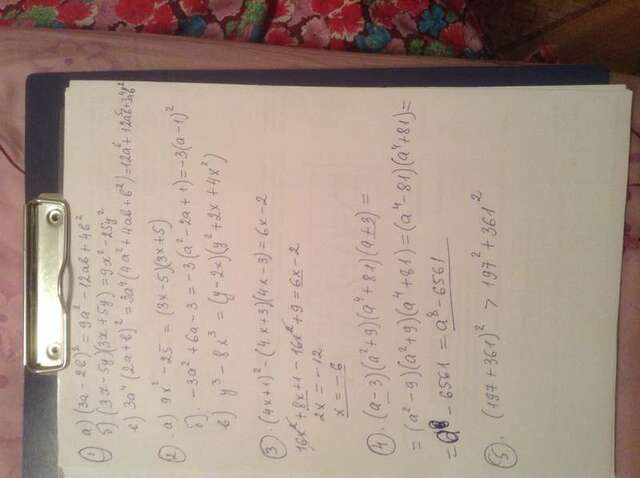 1 а) (3a - 2b)² = 9a² - 12ab + 4b²
б) (3x - 5y)(3x + 5y) = 9x² - 25y²
в) 3a⁴(2a + b)² = 3a⁴(4a² + 4ab + b²) = 12a⁶ + 12a⁵b + 3a⁴b²
2. а) 9x² - 25 = (3x - 5)(3x + 5)
б). -3a² + 6a - 3 = -3(a² - 2a + 1) = -3(a - 1)²
в) y³ - 8x³ = (y - 2x)(y² + 2x + 4x²)
3. (4x + 1)² - (4x + 3)(4x - 3) = 6x - 2
16x² + 8x + 1 - 16x² + 9 = 6x - 2
2x = -12
x = -6
4. (a - 3)(a² + 9)(a⁴ + 81)(a + 3) =
= (a² - 9)(a² + 9)(a⁴ + 81) = (a⁴ - 81)(a⁴ + 81) =
= a⁸ - 6561 = a⁸ - 6561
5. (197 + 361)² > 197² + 361²